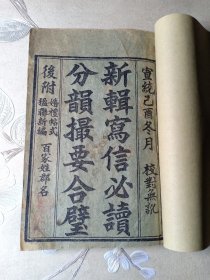 宣統己酉冬月　校對無訛
新輯寫信必讀
分韻撮要合璧
後附
婚禮帖式
楹聯新編
百家姓郡名